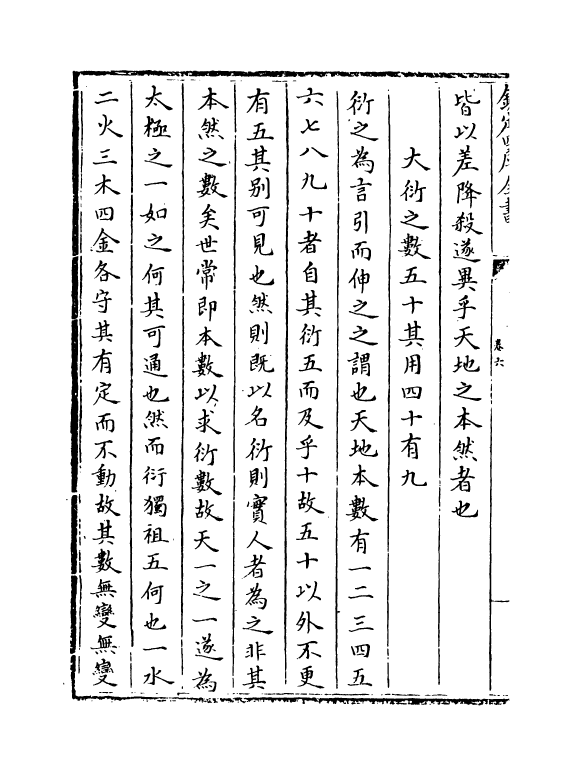 欽定四庫全書
卷六
皆以差降殺遂異乎天地之本然者也
大衍之數五十其用四十有九
衍之為言引而伸之之謂也天地本數有一二三四五
六七八九十者自其衍五而及乎十故五十以外不更
有五其別可見也然則既以名衍則實人者為之非其
本然之數矣世常即本數以求衍數故天一之一遂為
太極之一如之何其可通也然而衍獨祖五何也一水
二火三木四金各守其有定而不動故其數無變無變